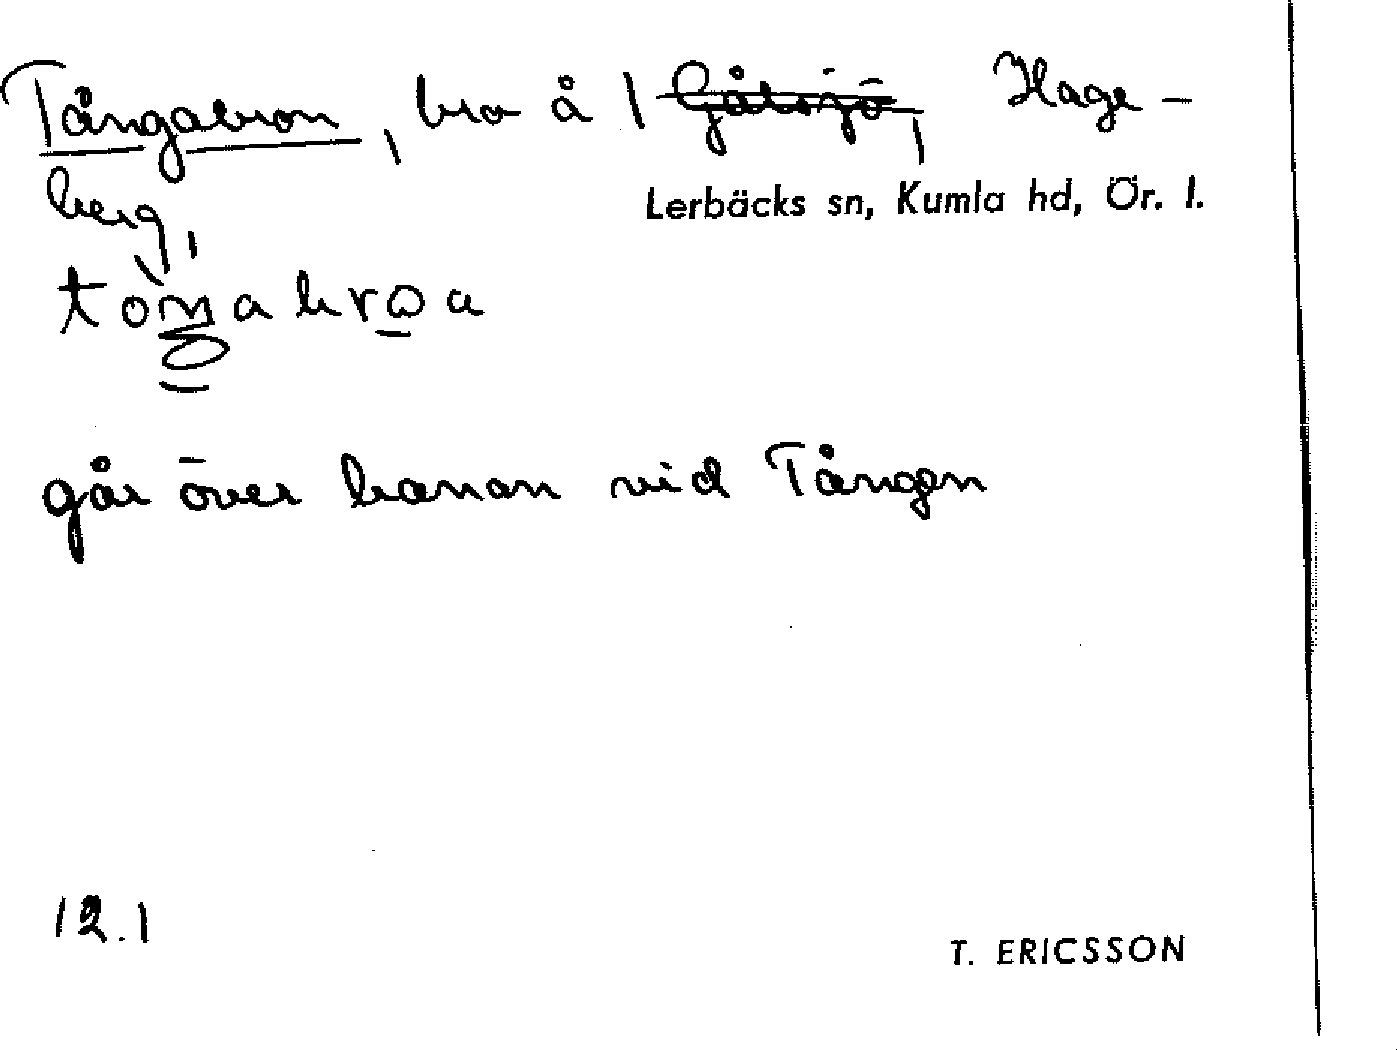 Tångabron, bro å | Gålsjö, Hage-
berg,
Lerbäcks sn, Kumla hd, Ör. l.
går över banan vid Tången
12.1
T. ERICSSON